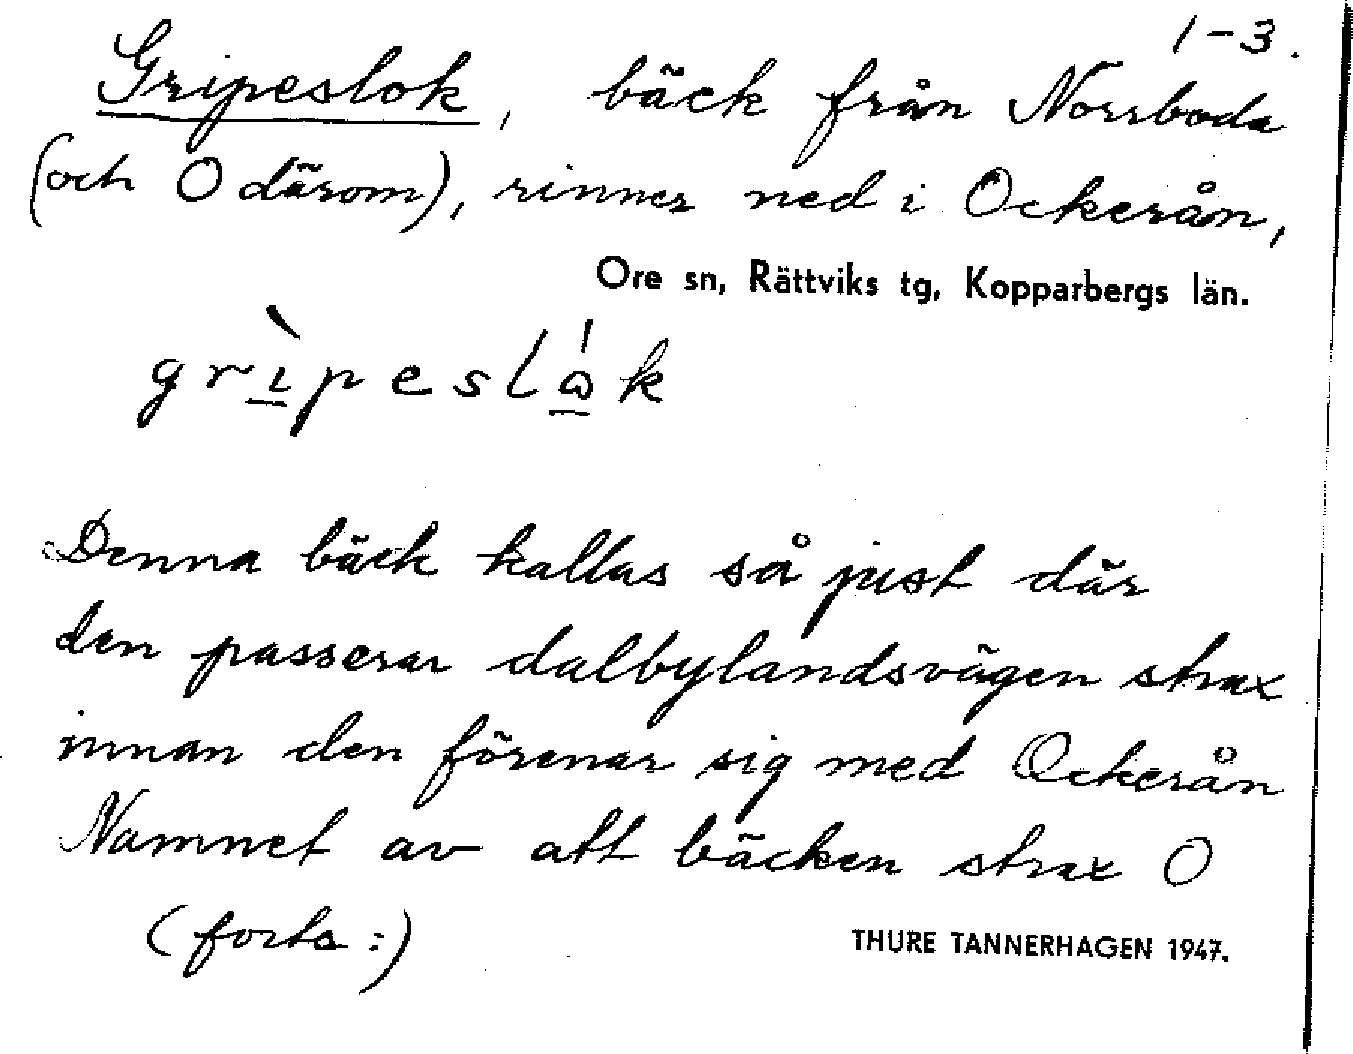 1-3.
Gripeslok, bäck från Norrboda
(och O därom), rinner ned i Ockerån,
Ore sn, Rättviks tg, Kopparbergs län.
gripeslωk
Denna bäck kallas så just där
den passerar dalbylandsvägen strax
innan den förenar sig med Ockerån
Namnet av att bäcken strax O
(forts:)
THURE TANNERHAGEN 1947.